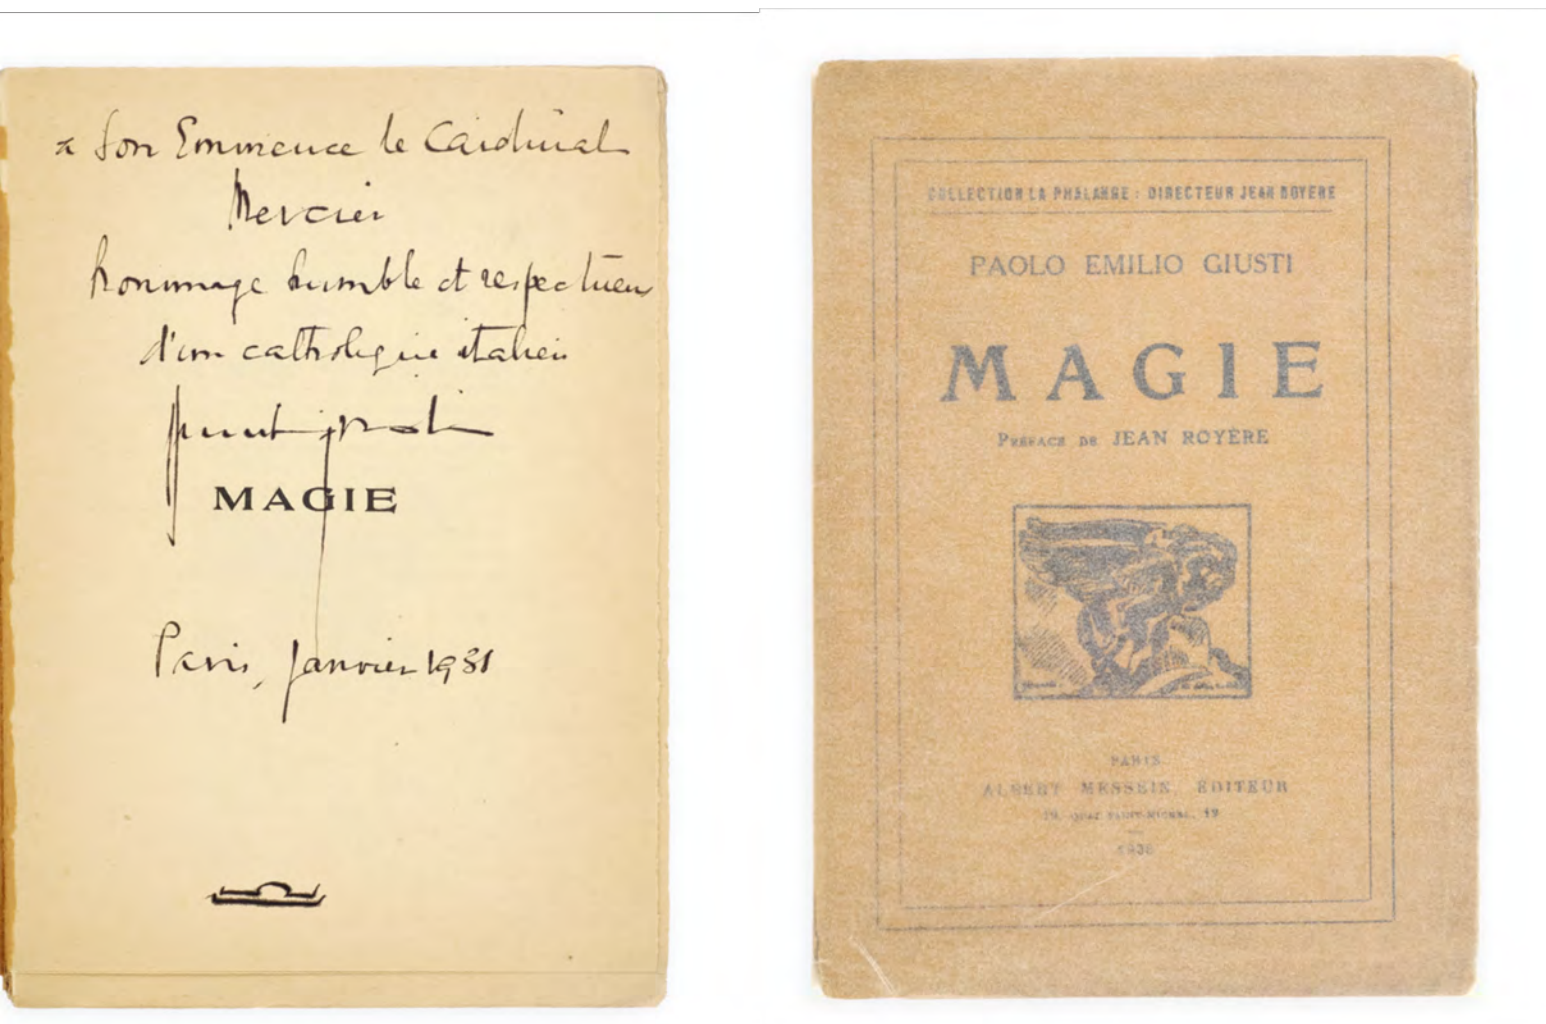 à Son Emminence le Cardinal
Mercier
hommage humble et respectueux
d'un catholique italien
MAGIE
Paris, Janvier 1931
COLLECTION LA PHALANGE : DIRECTEUR JEAN ROYERE
PAOLO EMILIO GIUSTI
MAGIE
PRÉFACE DE JEAN ROYÈRE
PARIS
ALBERT MESSEIN, EDITEUR
19, QUAI SAINT-MICHEL, 19